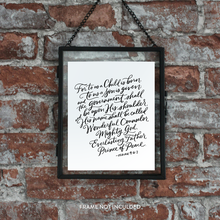 For to us a Child is born
to us a Son is given
and the government shall
be upon His shoulder
& His name shall be called
Wonderful Counselor
Mighty God
Everlasting Father
Prince of Peace
FRAME NOT INCLUDED